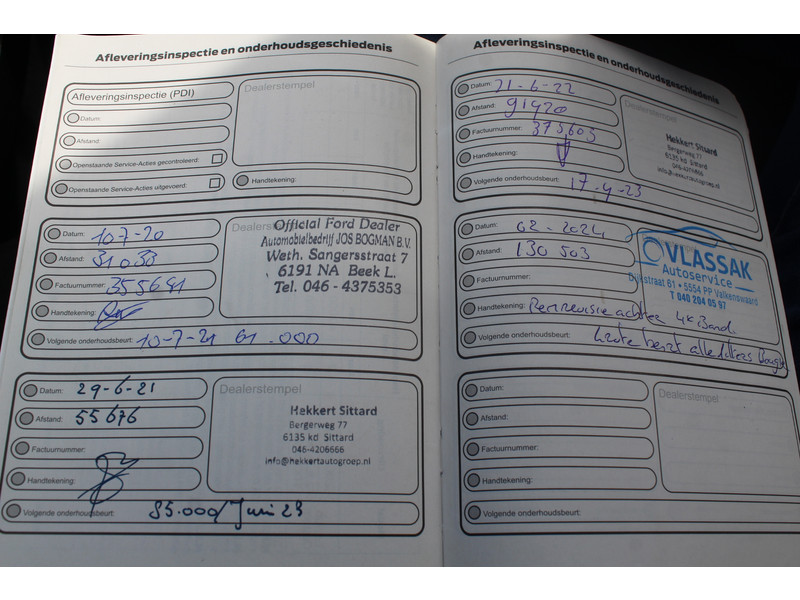 Afleveringsinspectie en onderhoudsgeschiedenis
Afleveringsinspectie (PDI)
Dealerstempel
Datum:
Afstand:
Openstaande Service-Acties gecontroleerd:
Openstaande Service-Acties uitgevoerd:
Handtekening:
Datum: 10-7-20
Dealerstempel
Afstand: 31033
Factuurnummer: 355691
Handtekening:
Official Ford Dealer
Automobielbedrijf JOS BOGMAN B.V.
Weth. Sangersstraat 7
6191 NA Beek L.
Tel. 046 - 4375353
Volgende onderhoudsbeurt: 10-7-21 61.000
Datum: 29-6-21
Dealerstempel
Afstand: 55676
Factuurnummer:
Handtekening:
Hekkert Sittard
Bergerweg 77
6135 kd Sittard
046-4206666
info@hekkertautogroep.nl
Volgende onderhoudsbeurt: 85.000/Juni 23
Afleveringsinspectie en onderhoudsgeschiedenis
Datum: 21-6-22
Dealerstempel
Afstand: 91420
Factuurnummer: 375605
Handtekening:
Hekkert Sittard
Bergerweg 77
6135 kd Sittard
046-4206666
info@hekkertautogroep.nl
Volgende onderhoudsbeurt: 17-4-23
Datum: 02-2024
Afstand: 130 503
Factuurnummer:
VLASSAK
Autoservice
Dijkstraat 61 • 5554 PP Valkenswaard
T 040 204 05 97
Handtekening: Remrevisie achter 4x Band.
Volgende onderhoudsbeurt: Grote beurt alle filters
Datum:
Dealerstempel
Afstand:
Factuurnummer:
Handtekening:
Volgende onderhoudsbeurt: